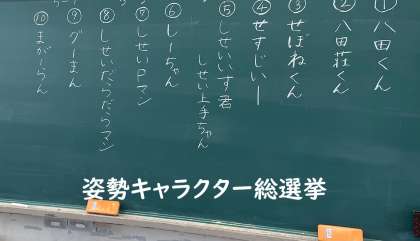 ①八田くん
②八田荘くん
③せぼねくん
④せすじぃー
⑤しせいいす君
しせい上手ちゃん
⑥しーちゃん
⑦しせいPマン
⑧しせいだらだらマン
⑨グーまん
⑩まがーらん
姿勢キャラクター総選挙